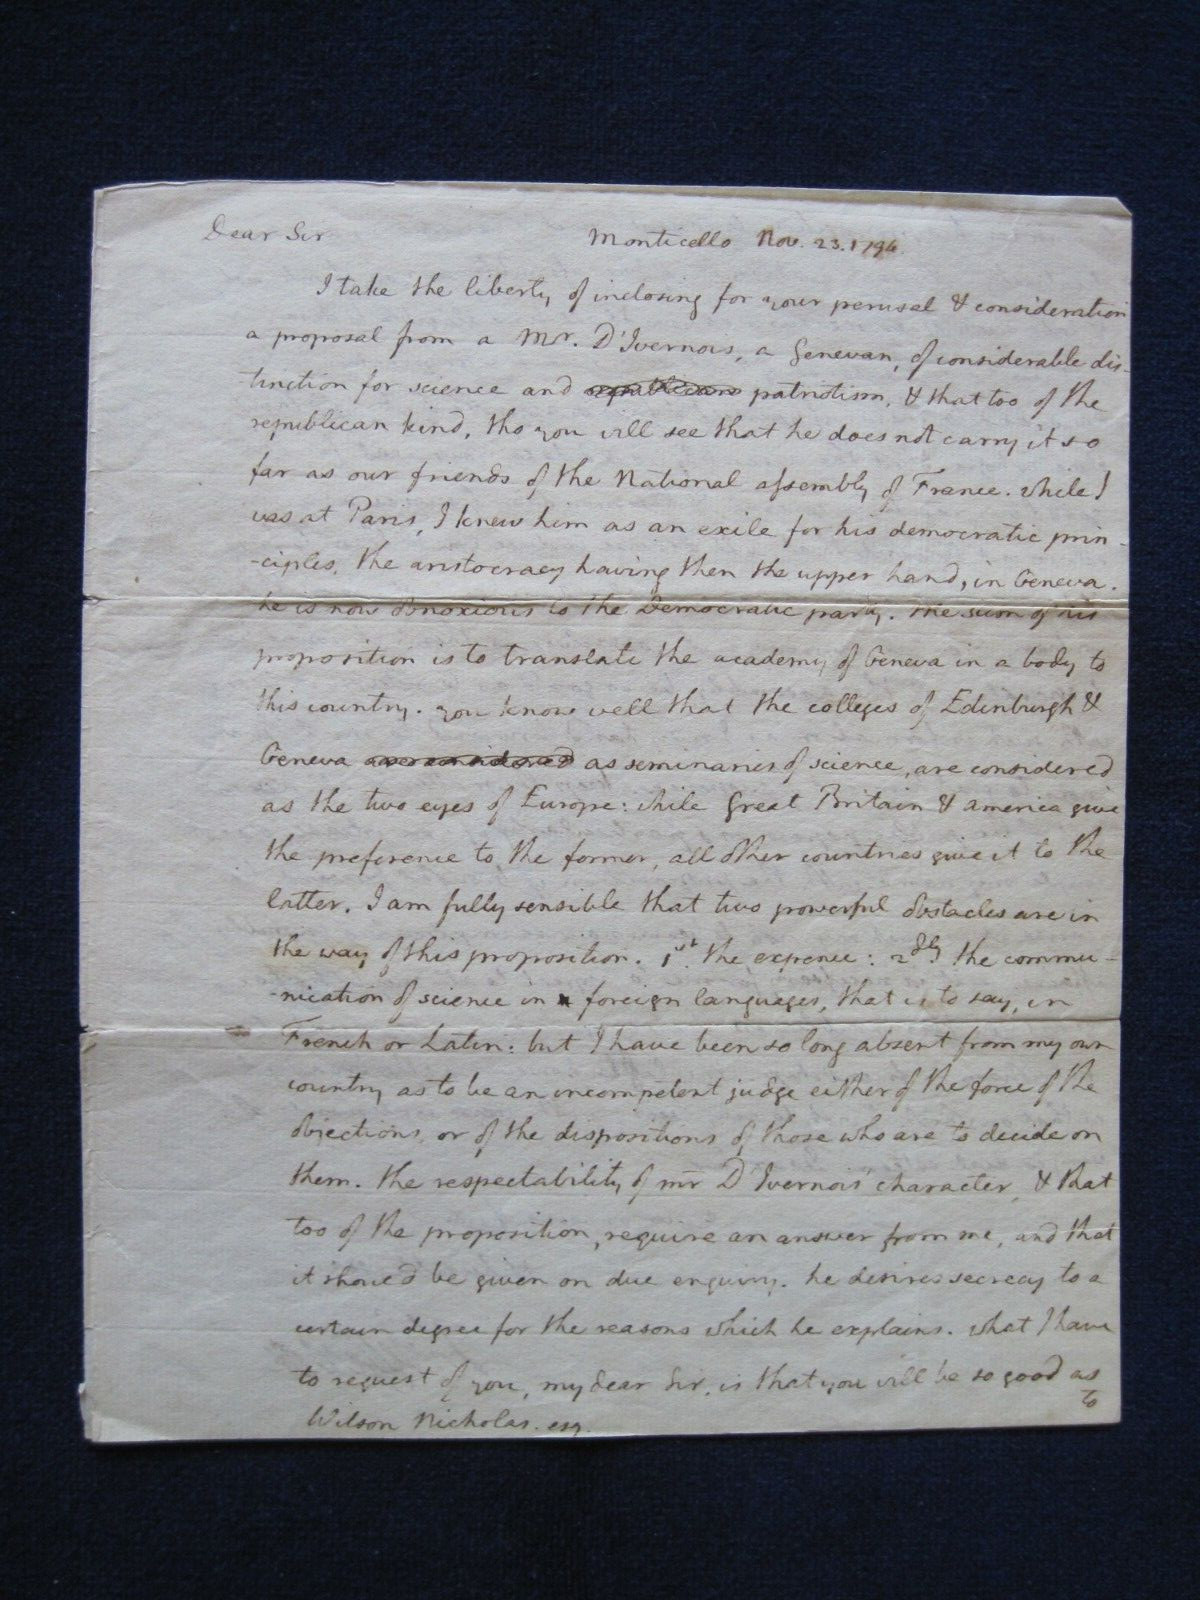 Dear Sir
Monticello Nov. 23. 1794.
I take the liberty of inclosing for your perusal & consideration
a proposal from a Mr. D'Ivernois, a Genevan, of considerable dis-
tinction for science and republicans patriotism, & that too of the
republican kind, tho you will see that he does not carry it so
far as our friends of the National assembly of France. while I
was at Paris, I knew him as an exile for his democratic prin-
-ciples, the aristocracy having then the upper hand, in Geneva.
he is now obnoxious to the Democratic party. the sum of his
proposition is to translate the academy of Geneva in a body to
this country. you know well that the colleges of Edinburgh &
Geneva are considered as seminaries of science, are considered
as the two eyes of Europe: while Great Britain & America give
the preference to the former, all other countries give it to the
latter. I am fully sensible that two powerful obstacles are in
the way of this proposition. 1st. the expence: 2dly the commu-
-nication of science in foreign languages, that is to say, in
French or Latin: but I have been so long absent from my own
country as to be an incompetent judge either of the force of the
objections, or of the dispositions of those who are to decide on
them. the respectability of mr D'Ivernois' character, & that
too of the proposition, require an answer from me, and that
it should be given on due enquiry. he desires secrecy to a
certain degree for the reasons which he explains. what I have
to request of you, my dear Sir, is that you will be so good as
to
Wilson Nicholas. esq.